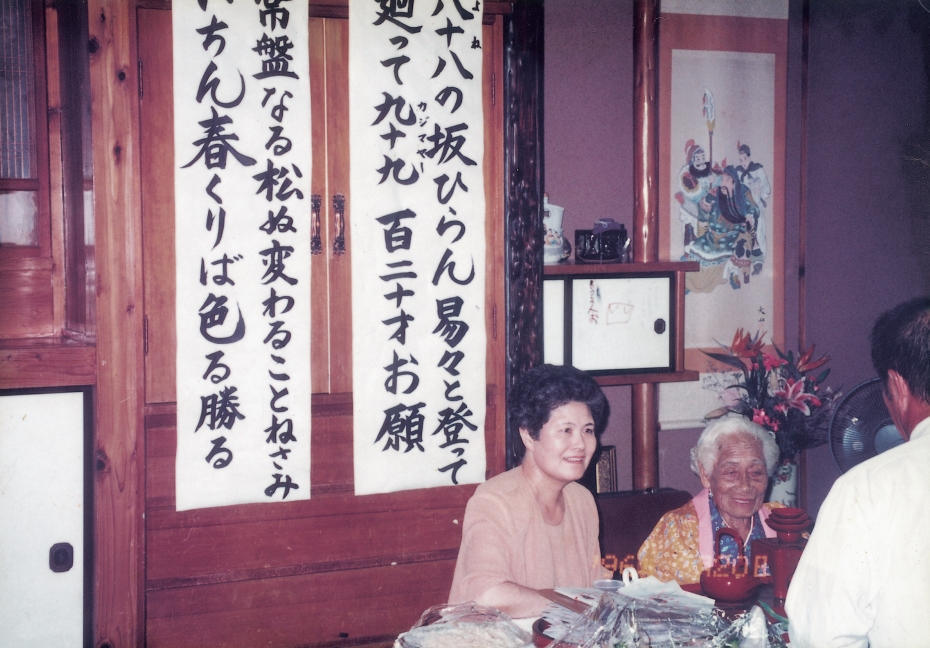 八十八の坂ひらん易々と登って
よね
廻って九十九 百二十才お願
カジマヤー
常盤なる松ぬ変わることねさみ
いちん春くりば色る勝る
大山